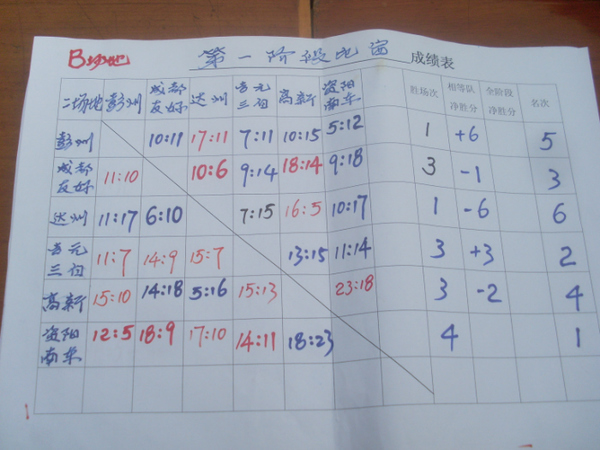 B场地 第一阶段比赛 成绩表
二场地 彭州 成都友好 达州 吉元三旬 高新 资阳南车 胜场次 相等队净胜分 全阶段净胜分 名次
彭州 10:11 17:11 7:11 10:15 5:12 1 +6 5
成都友好 11:10 10:6 9:14 18:14 9:18 3 -1 3
达州 11:17 6:10 7:15 16:5 10:17 1 -6 6
吉元三旬 11:7 14:9 15:7 13:15 11:14 3 +3 2
高新 15:10 14:18 5:16 15:13 23:18 3 -2 4
资阳南车 12:5 18:9 17:10 14:11 18:23 4 1